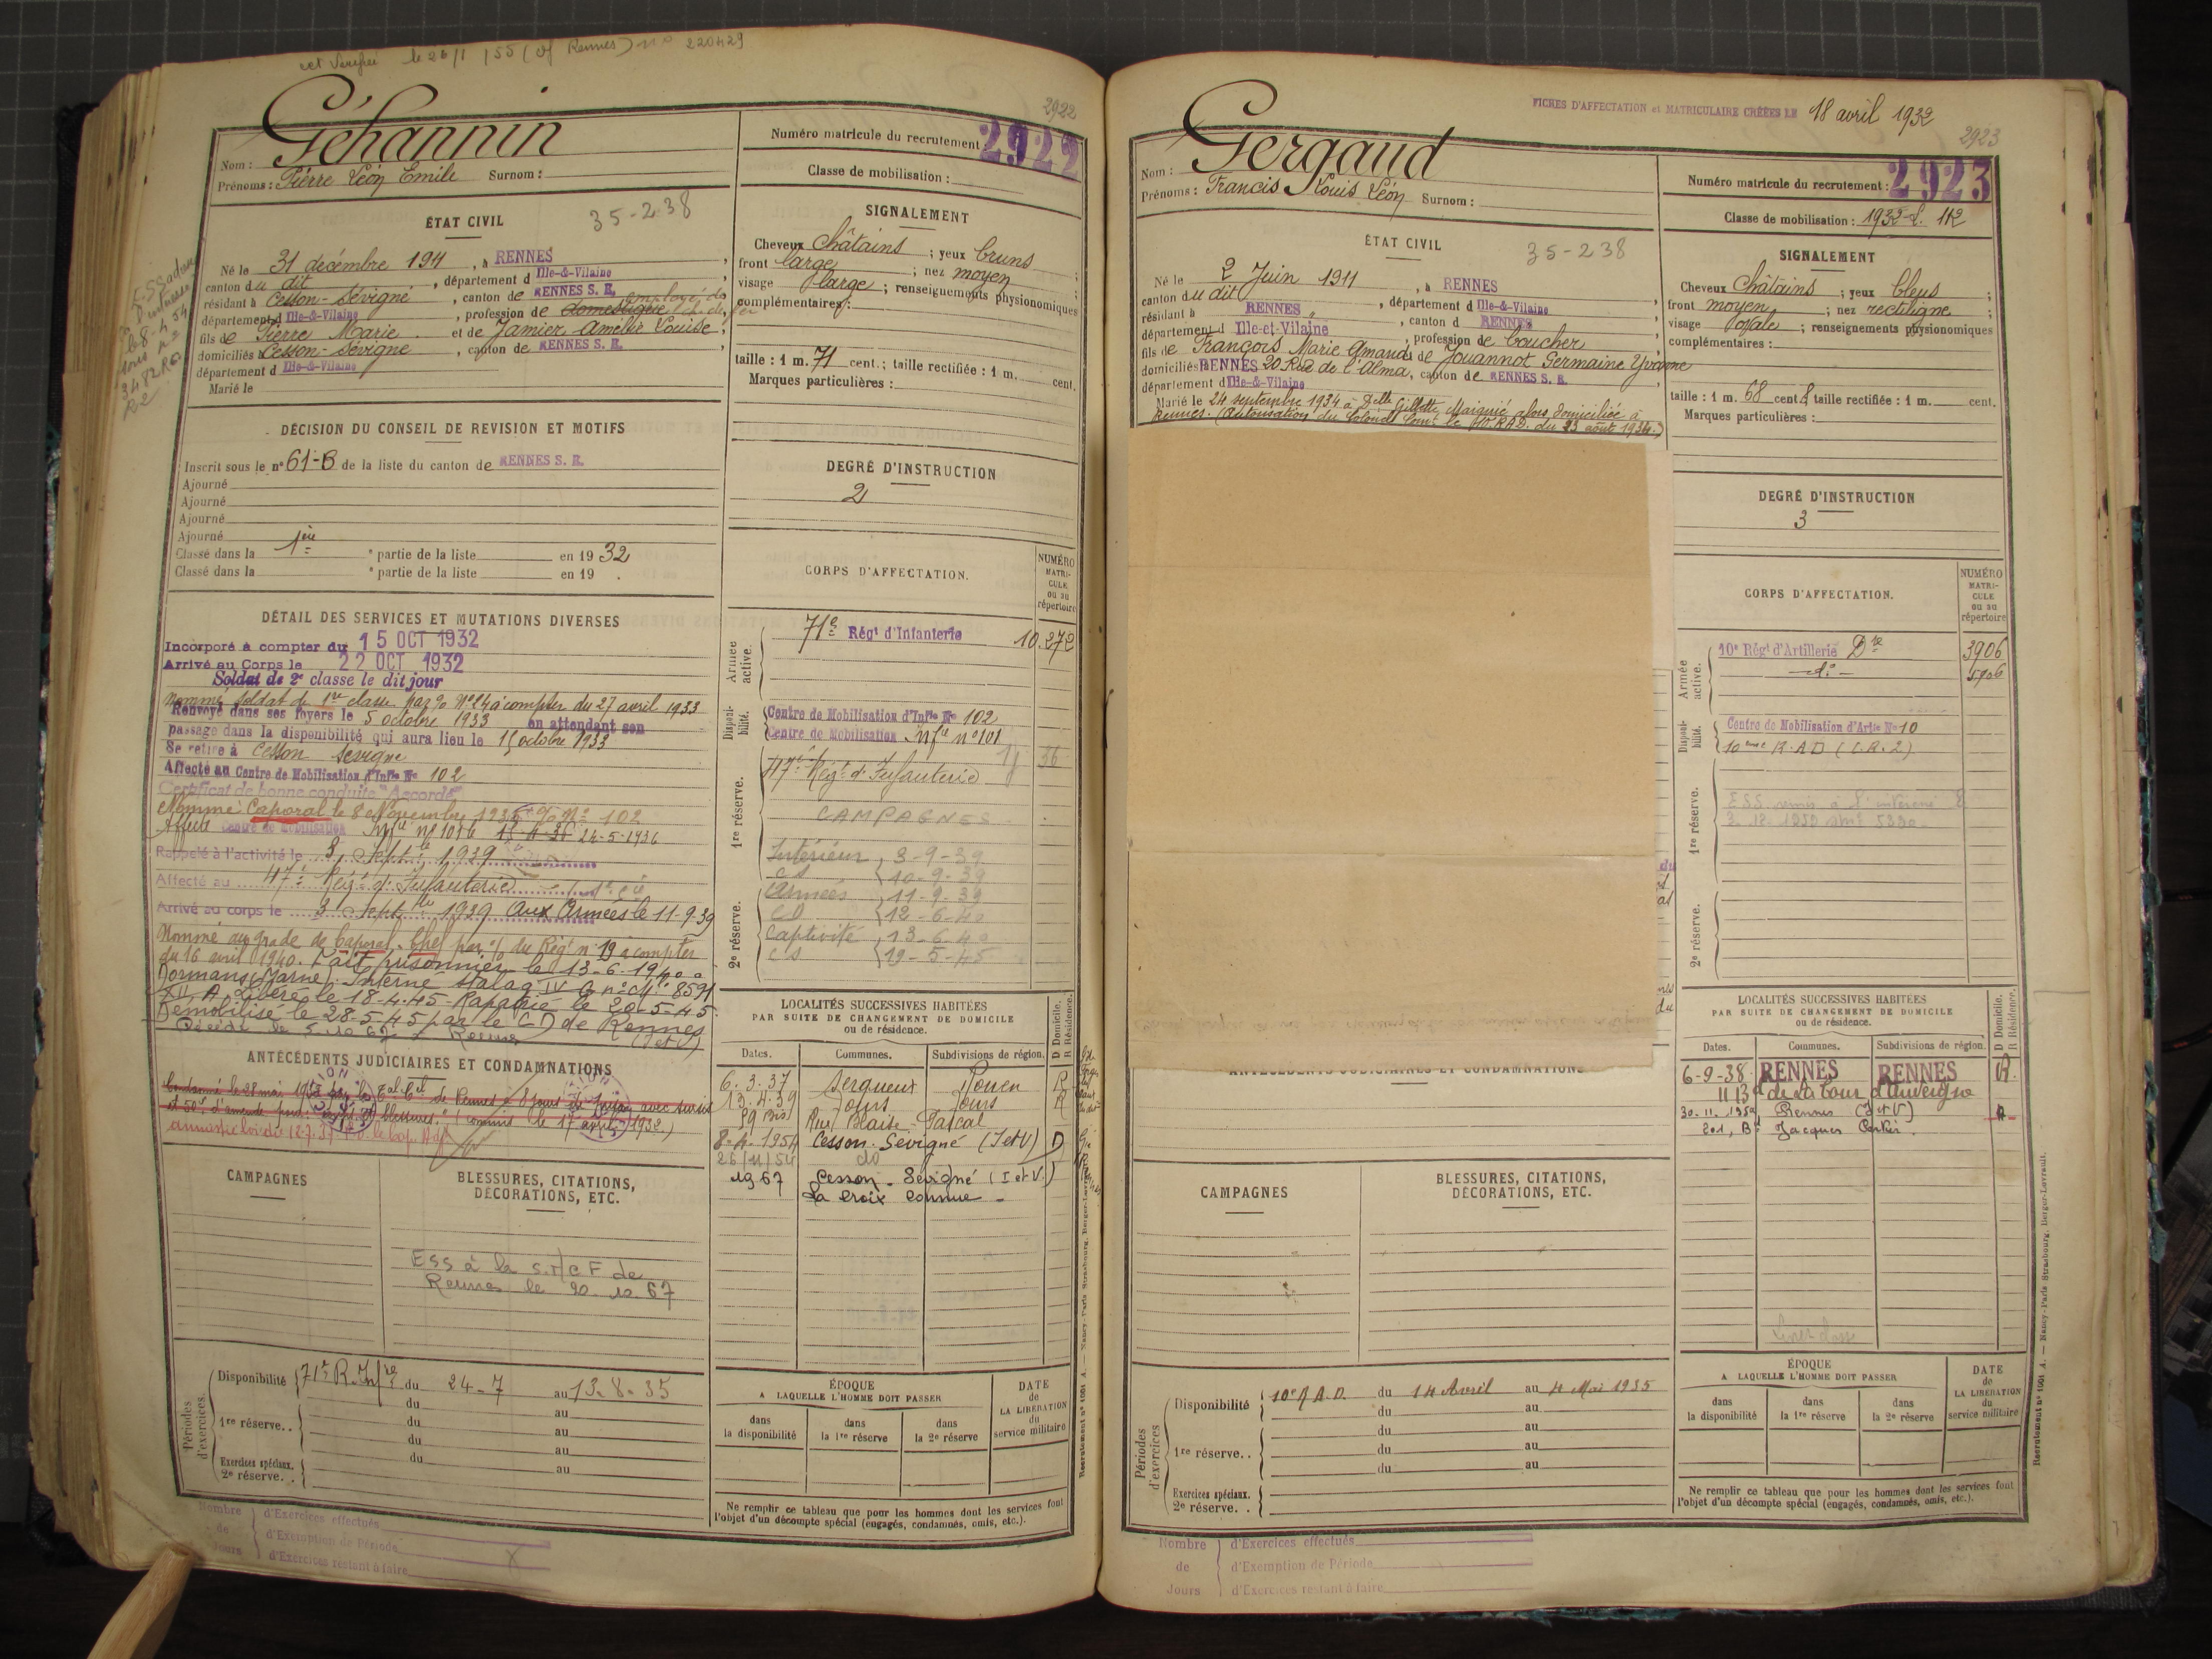 le 26/1/55 (Of Rennes) n° 220429
2922
Géhannin
Nom :
Prénoms : Pierre Léon Emile Surnom :
Numéro matricule du recrutement 2922
Classe de mobilisation :
ÉTAT CIVIL
35-2-38
Né le 31 décembre 1911, à RENNES
canton du dit, département d Ille-&-Vilaine
résidant à Cesson-Sévigné, canton de RENNES S. E.
département d Ille-&-Vilaine, profession de domestique employé de ch. de fer
fils de Pierre Marie et de Jamier Amélie Louise
domiciliés Cesson-Sévigné, canton de RENNES S. E.
département d Ille-&-Vilaine
Marié le
SIGNALEMENT
Cheveux Châtains ; yeux bruns ;
front large ; nez moyen ;
visage large ; renseignements physionomiques
complémentaires :
taille : 1 m. 71 cent. ; taille rectifiée : 1 m. cent.
Marques particulières :
DÉCISION DU CONSEIL DE REVISION ET MOTIFS
Inscrit sous le n° 61-B de la liste du canton de RENNES S. E.
Ajourné
Ajourné
Ajourné
Ajourné
Classé dans la 1ère partie de la liste en 1932
Classé dans la e partie de la liste en 19 .
DEGRÉ D'INSTRUCTION
2
DÉTAIL DES SERVICES ET MUTATIONS DIVERSES
Incorporé à compter du 15 OCT 1932
Arrivé au Corps le 22 OCT 1932
Soldat de 2e classe le dit jour
Nommé soldat de 1re classe par % N° 24 à compter du 27 avril 1933
Renvoyé dans ses foyers le 5 octobre 1933 en attendant son
passage dans la disponibilité qui aura lieu le 15 octobre 1933
Se retire à Cesson Sévigné
Affecté au Centre de Mobilisation d'Infie N° 102
Certificat de bonne conduite "Accordé"
Nommé Caporal le 8 Novembre 1935 % N° 102
Affecté Centre de Mobilisation Infie n° 101 le 24-5-1936
Rappelé à l'activité le 3 Septbre 1939
Affecté au 47e Régt d'Infanterie
Arrivé au corps le 3 Septbre 1939 Aux Armées le 11-9-39
Nommé au grade de Caporal-Chef par % du Régt n° 19 à compter
du 16 avril 1940. Fait prisonnier le 13-6-1940 à
Dormans (Marne). Interné stalag IV
XII A Libéré le 18-4-45 Rapatrié le 20-5-45
Démobilisé le 28-5-45 par le CD de Rennes
Décédé le 5.10.67 à Rennes (I et V)
CORPS D'AFFECTATION.
NUMÉRO MATRICULE ou au répertoire
Armée active.
71e Régt d'Infanterie 10.272
Disponibilité.
Centre de Mobilisation d'Infie N° 102
Centre de Mobilisation Infie n° 101
1re réserve.
47e Régt d'Infanterie
CAMPAGNES
Intérieur, 3-9-39
CS 10-9-39
Armées, 11-9-39
CD 12-6-40
2e réserve.
Captivité, 13-6-40
CS 19-5-45
ANTÉCÉDENTS JUDICIAIRES ET CONDAMNATIONS
LOCALITÉS SUCCESSIVES HABITÉES
PAR SUITE DE CHANGEMENT DE DOMICILE
ou de résidence.
D Domicile. R Résidence.
Dates. Communes. Subdivisions de région.
6.3.37 Serqueux Rouen R
13.4.39 Tours Tours R
59 bis Rue Blaise Pascal
8-4-1954 Cesson-Sévigné (I et V) D
26/11/54 do
1967 Cesson-Sévigné (I et V)
La Croix Connue
CAMPAGNES
BLESSURES, CITATIONS, DÉCORATIONS, ETC.
ESS à la S.N.C.F de
Rennes le 20.10.67
Périodes d'exercices.
Disponibilité 71e R. Infie du 24-7 au 13-8-35
du au
1re réserve.. du au
du au
du au
Exercices spéciaux. 2e réserve. .
ÉPOQUE
A LAQUELLE L'HOMME DOIT PASSER
dans la disponibilité
dans la 1re réserve
dans la 2e réserve
DATE de LA LIBÉRATION du service militaire
Ne remplir ce tableau que pour les hommes dont les services font
l'objet d'un décompte spécial (engagés, condamnés, omis, etc.).
Nombre de Jours
d'Exercices effectués
d'Exemption de Période
d'Exercices restant à faire
FICHES D'AFFECTATION et MATRICULAIRE CRÉÉES LE 18 avril 1932
2923
Gergaud
Nom :
Prénoms : Francis Louis Léon Surnom :
Numéro matricule du recrutement : 2923
Classe de mobilisation : 1932
ÉTAT CIVIL
35-238
Né le 2 Juin 1911, à RENNES
canton du dit, département d Ille-&-Vilaine
résidant à RENNES, canton d RENNES
département d Ille-et-Vilaine, profession de boucher
fils de François Marie Amand et de Jouannot Germaine Yvonne
domiciliés RENNES 20 Rue de l'Alma, canton de RENNES S. E.
département d Ille-&-Vilaine
Marié le 24 septembre 1934 à Delle Gillette Maignié alors domiciliée à
Rennes. (Autorisation du Colonel Comt le 10e R.A.D. du 23 août 1934.)
SIGNALEMENT
Cheveux Châtains ; yeux bleus ;
front moyen ; nez rectiligne ;
visage ovale ; renseignements physionomiques
complémentaires :
taille : 1 m. 68 cent. ; taille rectifiée : 1 m. cent.
Marques particulières :
DEGRÉ D'INSTRUCTION
3
CORPS D'AFFECTATION.
NUMÉRO MATRICULE ou au répertoire
Armée active.
10e Régt d'Artillerie Dre 3906
do 5906
Disponibilité.
Centre de Mobilisation d'Artie N° 10
10ème R.A.D (C.R.2)
1re réserve.
2e réserve.
ANTÉCÉDENTS JUDICIAIRES ET CONDAMNATIONS
LOCALITÉS SUCCESSIVES HABITÉES
PAR SUITE DE CHANGEMENT DE DOMICILE
ou de résidence.
D Domicile. R Résidence.
Dates. Communes. Subdivisions de région.
6-9-38 RENNES RENNES R.
11 Bd de La Tour d'Auvergne
30-11-1959 Rennes (I et V)
201, Bd Jacques Cartier.
CAMPAGNES
BLESSURES, CITATIONS, DÉCORATIONS, ETC.
Périodes d'exercices
Disponibilité 10e R.A.D. du 14 Avril au 4 Mai 1935
du au
1re réserve.. du au
du au
du au
Exercices spéciaux. 2e réserve. .
ÉPOQUE
A LAQUELLE L'HOMME DOIT PASSER
dans la disponibilité
dans la 1re réserve
dans la 2e réserve
DATE de LA LIBÉRATION du service militaire
Ne remplir ce tableau que pour les hommes dont les services font
l'objet d'un décompte spécial (engagés, condamnés, omis, etc.).
Nombre de Jours
d'Exercices effectués
d'Exemption de Période
d'Exercices restant à faire
Recrutement n° 1661 A. — Nancy-Paris Strasbourg, Berger-Levrault.